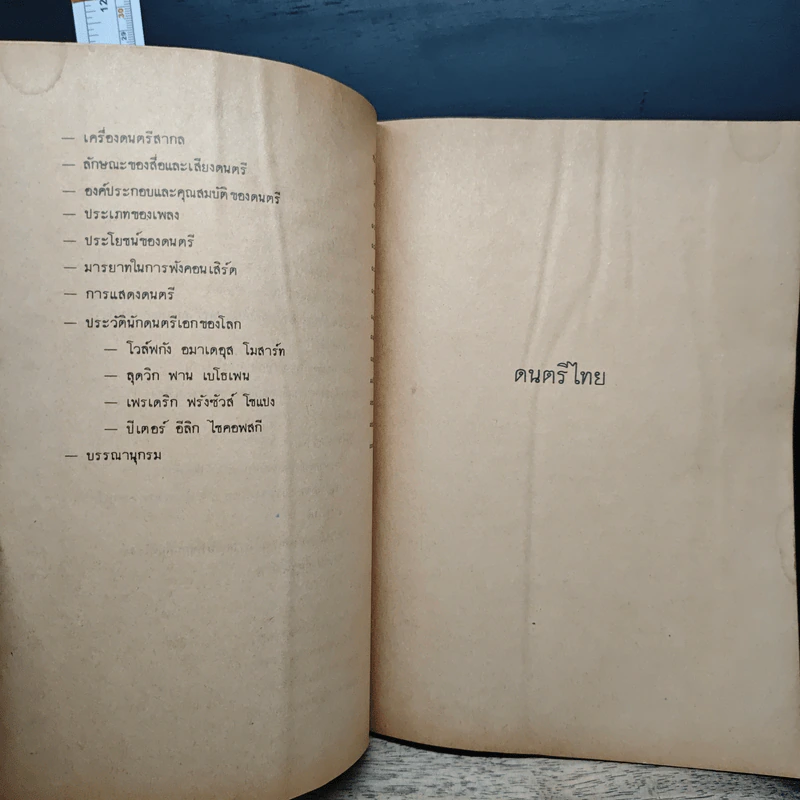 — เครื่องดนตรีสากล
— ลักษณะของสื่อและเสียงดนตรี
— องค์ประกอบและคุณสมบัติของดนตรี
— ประเภทของเพลง
— ประโยชน์ของดนตรี
— มารยาทในการฟังคอนเสิร์ต
— การแสดงดนตรี
— ประวัตินักดนตรีเอกของโลก
— โวล์ฟกัง อมาเดอุส โมสาร์ท
— ลุดวิก ฟาน เบโธเฟน
— เฟรเดริก ฟรังซัวส์ โชแปง
— ปีเตอร์ อีลิก ไชคอฟสกี
— บรรณานุกรม
ดนตรีไทย
12
30
29